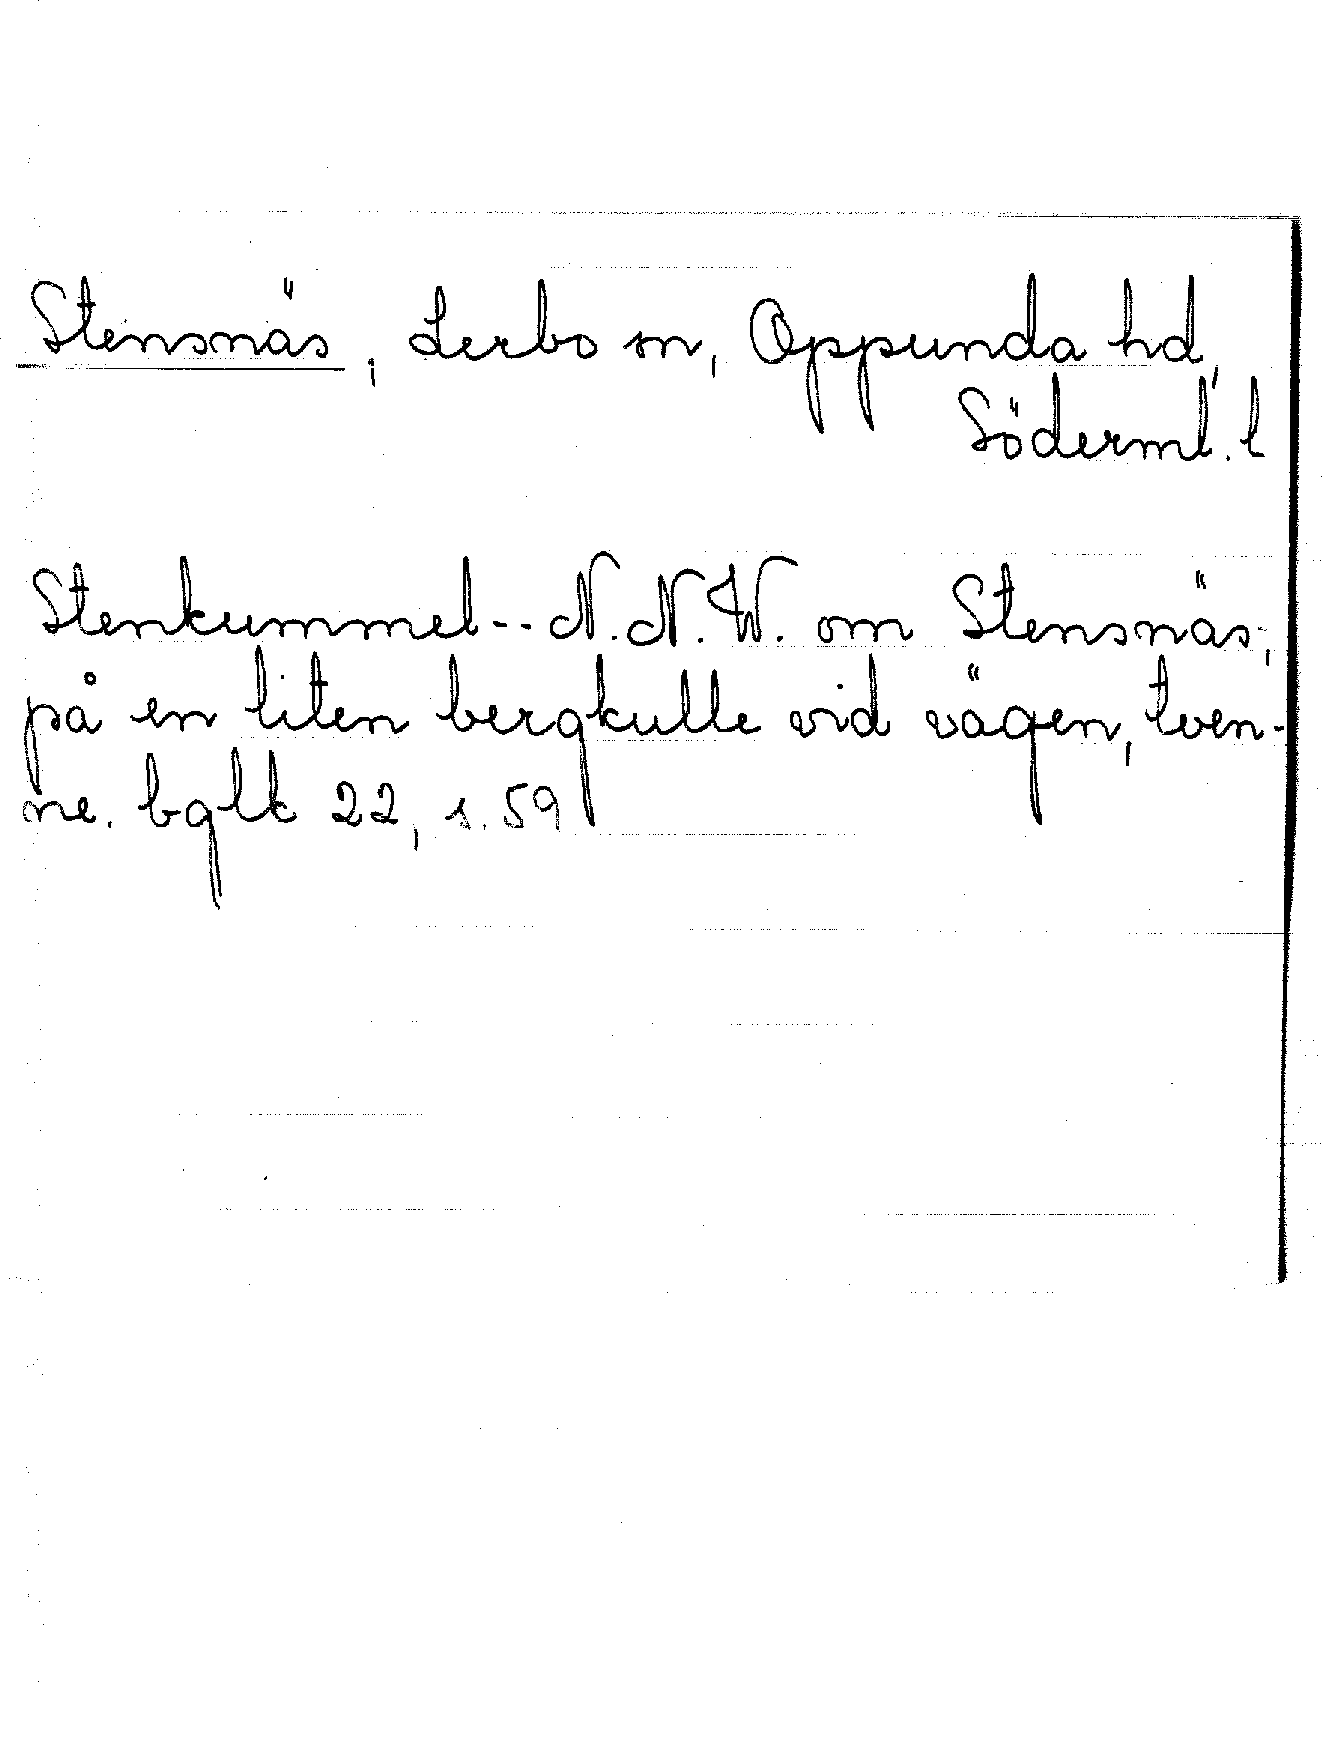 Stensnäs, Lerbo sn, Oppunda hd,
Söderml. l
Stenkummel-- N.N.W. om Stensnäs,
på en liten bergkulle vid vägen, tven-
ne. bglk 22, s. 59